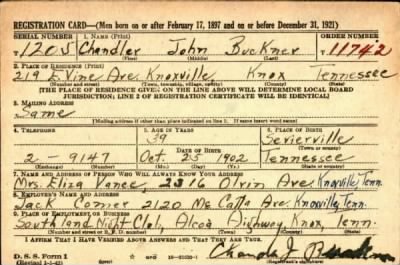 REGISTRATION CARD—(Men born on or after February 17, 1897 and on or before December 31, 1921)
SERIAL NUMBER 1. NAME (Print) ORDER NUMBER
1205 Chandler John Buckner 11742
(First) (Middle) (Last)
2. PLACE OF RESIDENCE (Print)
219 E. Vine Ave. Knoxville Knox Tennessee
(Number and street) (Town, township, village, or city) (County) (State)
[THE PLACE OF RESIDENCE GIVEN ON THE LINE ABOVE WILL DETERMINE LOCAL BOARD
JURISDICTION; LINE 2 OF REGISTRATION CERTIFICATE WILL BE IDENTICAL]
3. MAILING ADDRESS
Same
[Mailing address if other than place indicated on line 2. If same insert word same]
4. TELEPHONE 5. AGE IN YEARS 6. PLACE OF BIRTH
39 Sevierville
DATE OF BIRTH (Town or county)
2-9147 Oct. 25 1902 Tennessee
(Exchange) (Number) (Mo.) (Day) (Yr.) (State or country)
7. NAME AND ADDRESS OF PERSON WHO WILL ALWAYS KNOW YOUR ADDRESS
Mrs. Eliza Vance, 2316 Ave Knoxville, Tenn.
8. EMPLOYER'S NAME AND ADDRESS
Jack Comer 2120 Mc Calla Ave. Knoxville, Tenn.
9. PLACE OF EMPLOYMENT OR BUSINESS
Southland Night Club, Alcoa Highway, Knox, Tenn.
(Number and street or R. F. D. number) (Town) (County) (State)
I AFFIRM THAT I HAVE VERIFIED ABOVE ANSWERS AND THAT THEY ARE TRUE.
D. S. S. Form 1
(Revised 1-1-42) (over) (Registrant's signature)